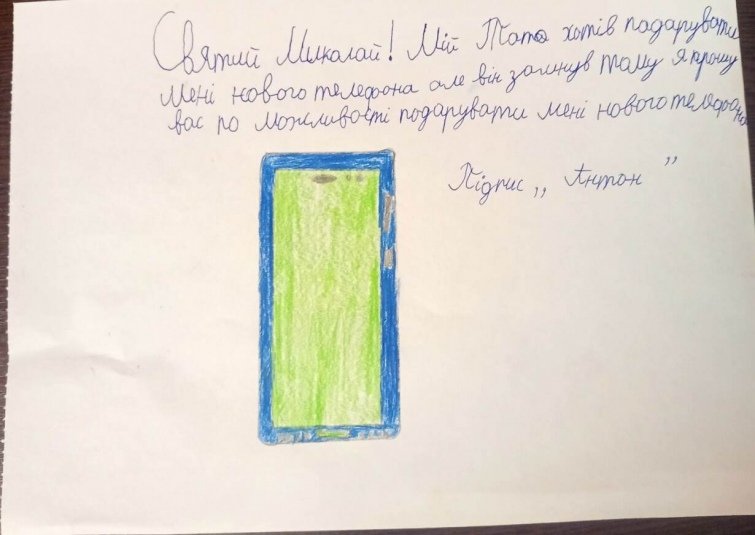 Святий Миколай! Мій Тато хотів падарувати
мені нового телефона але він загинув тому я прошу
вас по можливості подарувати мені нового телефона
Підпис „ Антон ”